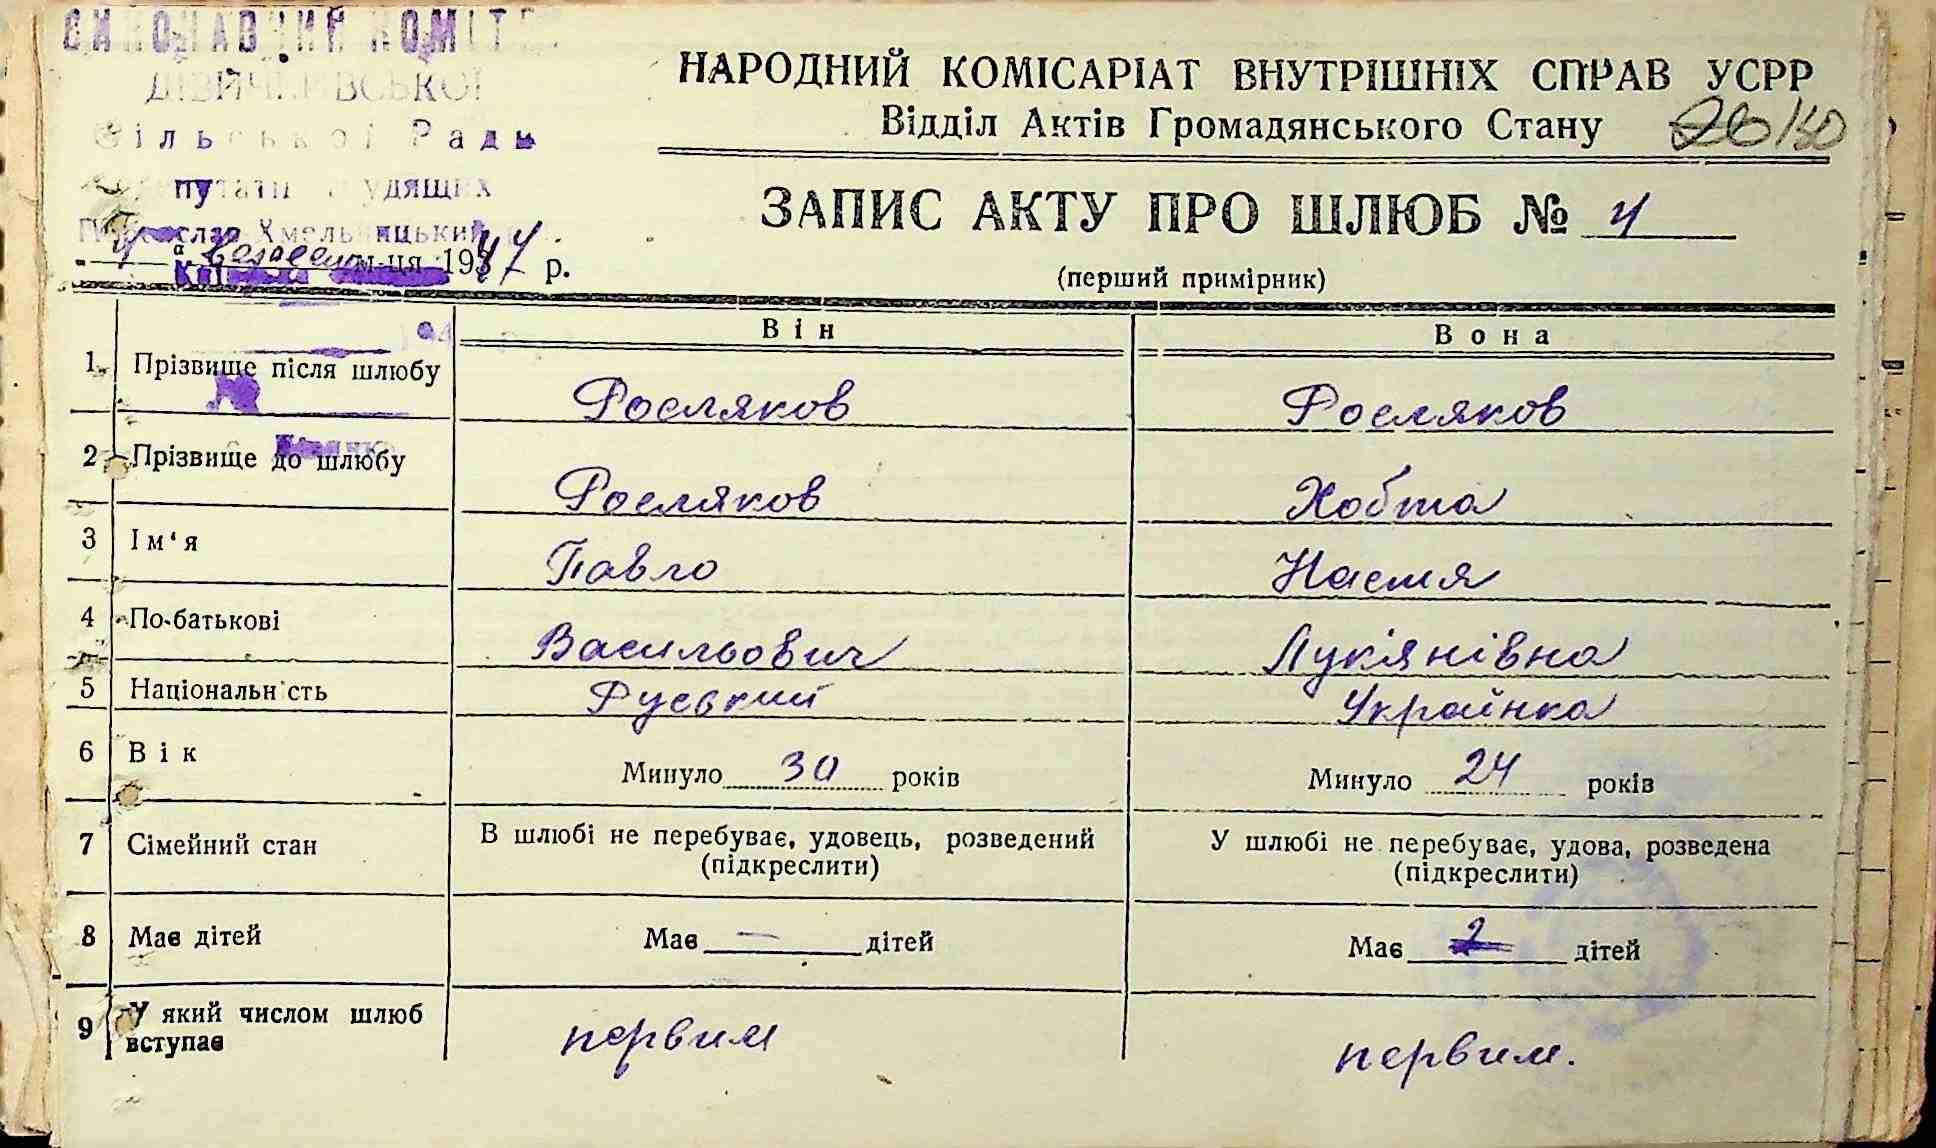 ВИКОНАВЧИЙ КОМІТЕТ
Сільської Ради
путатів удящих
Хмельницький
НАРОДНИЙ КОМІСАРІАТ ВНУТРІШНІХ СПРАВ УСРР
Відділ Актів Громадянського Стану
ЗАПИС АКТУ ПРО ШЛЮБ № 4
(перший примірник)
м-ця 1944 р.
Він
Вона
1. Прізвище після шлюбу Росляков Росляков
2 Прізвище до шлюбу Росляков Хобта
3 Ім'я Павло Настя
4 По-батькові Васильович Лук'янівна
5 Національність Руський Українка
6 Вік Минуло 30 років Минуло 24 років
7 Сімейний стан В шлюбі не перебуває, удовець, розведений У шлюбі не перебуває, удова, розведена
(підкреслити) (підкреслити)
8 Має дітей Має — дітей Має 2 дітей
9 У який числом шлюб
вступає первим первим.